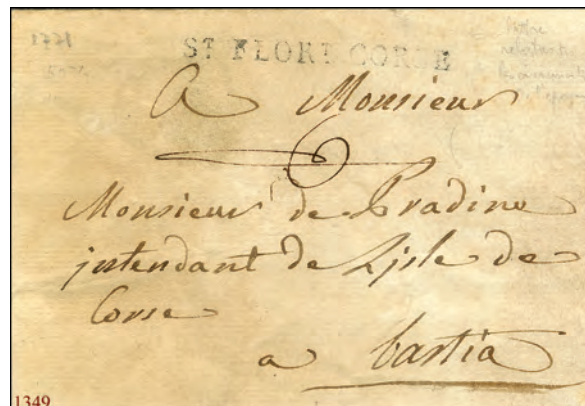 1771
ST FLORT CORSE
lettre
relatant
A Monsieur
Monsieur de Pradine
intendant de Lisle de
Corse
a bastia
1349